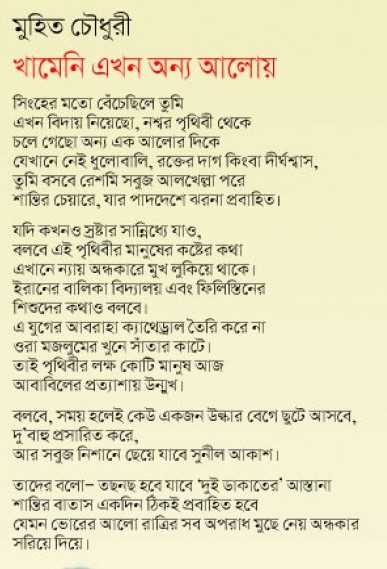 মুহিত চৌধুরী
খামেনি এখন অন্য আলোয়
সিংহের মতো বেঁচেছিলে তুমি
এখন বিদায় নিয়েছো, নশ্বর পৃথিবী থেকে
চলে গেছো অন্য এক আলোর দিকে
যেখানে নেই ধুলোবালি, রক্তের দাগ কিংবা দীর্ঘশ্বাস,
তুমি বসবে রেশমি সবুজ আলখেল্লা পরে
শান্তির চেয়ারে, যার পাদদেশে ঝরনা প্রবাহিত।
যদি কখনও স্রষ্টার সান্নিধ্যে যাও,
বলবে এই পৃথিবীর মানুষের কষ্টের কথা
এখানে ন্যায় অন্ধকারে মুখ লুকিয়ে থাকে।
ইরানের বালিকা বিদ্যালয় এবং ফিলিস্তিনের
শিশুদের কথাও বলবে।
এ যুগের আবরাহা ক্যাথেড্রাল তৈরি করে না
ওরা মজলুমের খুনে সাঁতার কাটে।
তাই পৃথিবীর লক্ষ কোটি মানুষ আজ
আবাবিলের প্রত্যাশায় উন্মুখ।
বলবে, সময় হলেই কেউ একজন উল্কার বেগে ছুটে আসবে,
দু'বাহু প্রসারিত করে,
আর সবুজ নিশানে ছেয়ে যাবে সুনীল আকাশ।
তাদের বলো– তছনছ হবে যাবে ‘দুই ডাকাতের’ আস্তানা
শান্তির বাতাস একদিন ঠিকই প্রবাহিত হবে
যেমন ভোরের আলো রাত্রির সব অপরাধ মুছে নেয় অন্ধকার
সরিয়ে দিয়ে।